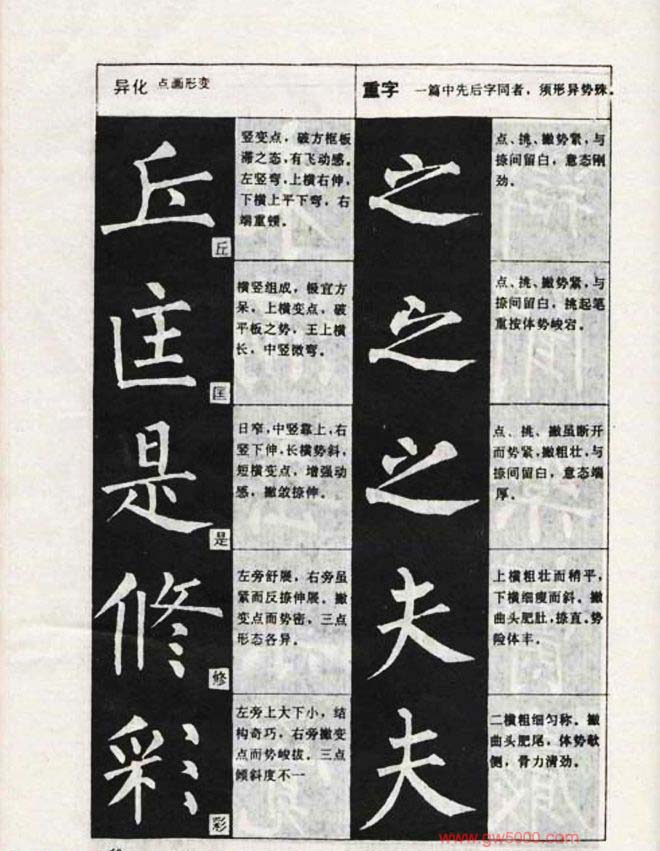 异化 点画形变
丘
丘
竖变点，破方框板
滞之态，有飞动感。
左竖弯，上横右伸，
下横上平下弯，右
端重顿。
匡
匡
横竖组成，极宜方
呆，上横变点，破
平板之势，王上横
长，中竖微弯。
是
是
日窄，中竖靠上，右
竖下伸，长横势斜，
短横变点，增强动
感，撇敛捺伸。
修
修
左旁舒展，右旁虽
紧而反捺伸展。撇
变点而势密，三点
形态各异。
彩
彩
左旁上大下小，结
构奇巧，右旁撇变
点而势峻拔。三点
倾斜度不一
重字 一篇中先后字同者，须形异势殊。
之
点、挑、撇势紧，与
捺间留白，意态刚
劲。
之
点、挑、撇势紧，与
捺间留白，挑起笔
重按体势峻宕。
之
点、挑、撇虽断开
而势紧，撇粗壮，与
捺间留白，意态端
厚。
夫
上横粗壮而稍平，
下横细瘦而斜。撇
曲头肥肚，捺直。势
险体丰。
夫
二横粗细匀称。撇
曲头肥尾，体势欹
侧，骨力清劲。
www.gw5000.com